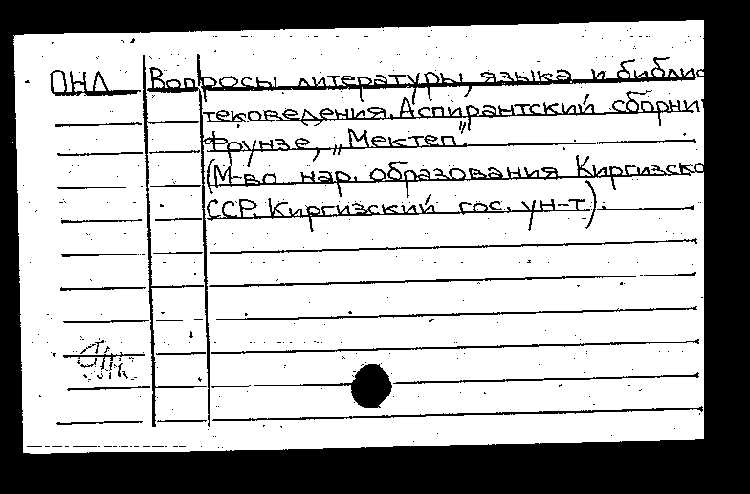 ОНЛ Вопросы литературы, языка и библио
тековедения. Аспирантский сборни
Фрунзе, „Мектеп"
(М-во нар. образования Киргизско
ССР. Киргизский гос. ун-т).